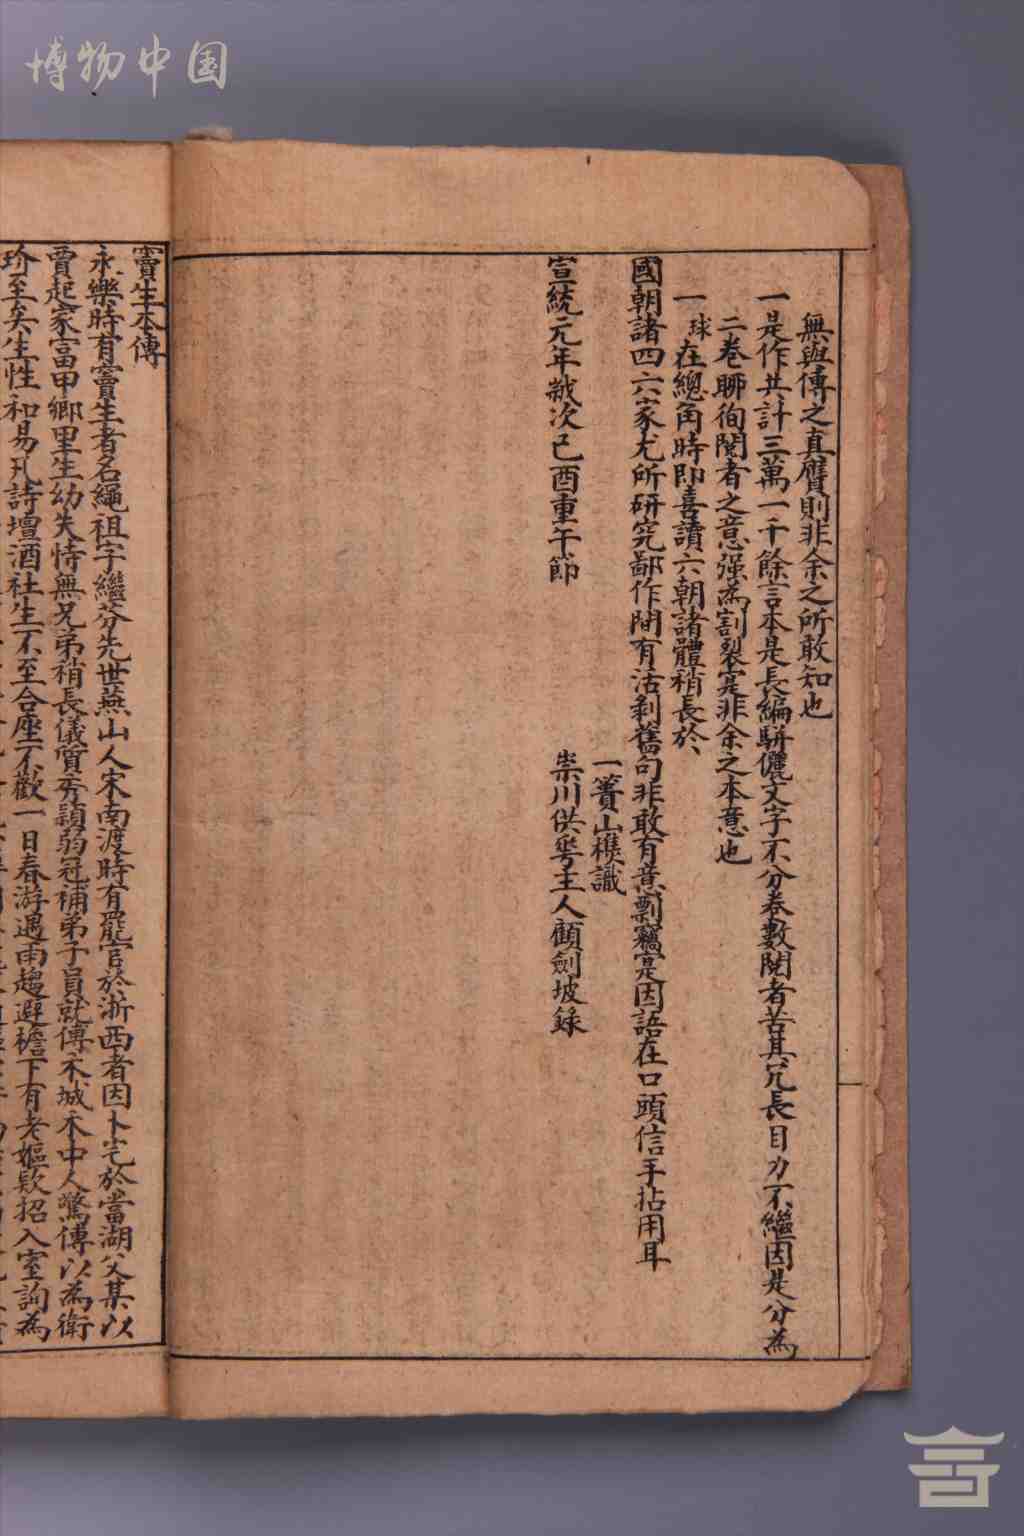 博物中国
無與傳之真贋則非余之所敢知也
一是作共計三萬一千餘言本是長編駢儷文字不分卷數閱者苦其冗長目力不繼因是分為
二卷聊徇閱者之意強為割裂寔非余之本意也
一球在總角時即喜讀六朝諸體稍長於
國朝諸四六家尤所研究鄙作間有活剝舊句非敢有意剽竊寔因語在口頭信手拈用耳
一簣山樵識
宣統元年歲次己酉重午節
崇川供粤主人顧劍坡錄
竇生本傳
永樂時有竇生者名繩祖字繼芬先世燕山人宋南渡時有罷官於浙西者因卜宅於當湖父某以
賈起家富甲鄉里生幼失恃無兄弟稍長儀質秀穎弱冠補弟子員就傅禾城禾中人驚傳以為衛
玠至矣生性和易凡詩壇酒社生不至合座不歡一日春游遇雨趨避檐下有老嫗欵招入室詢為